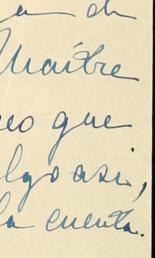 a de
Maître
eo que
lgo asi,
la cuenta.